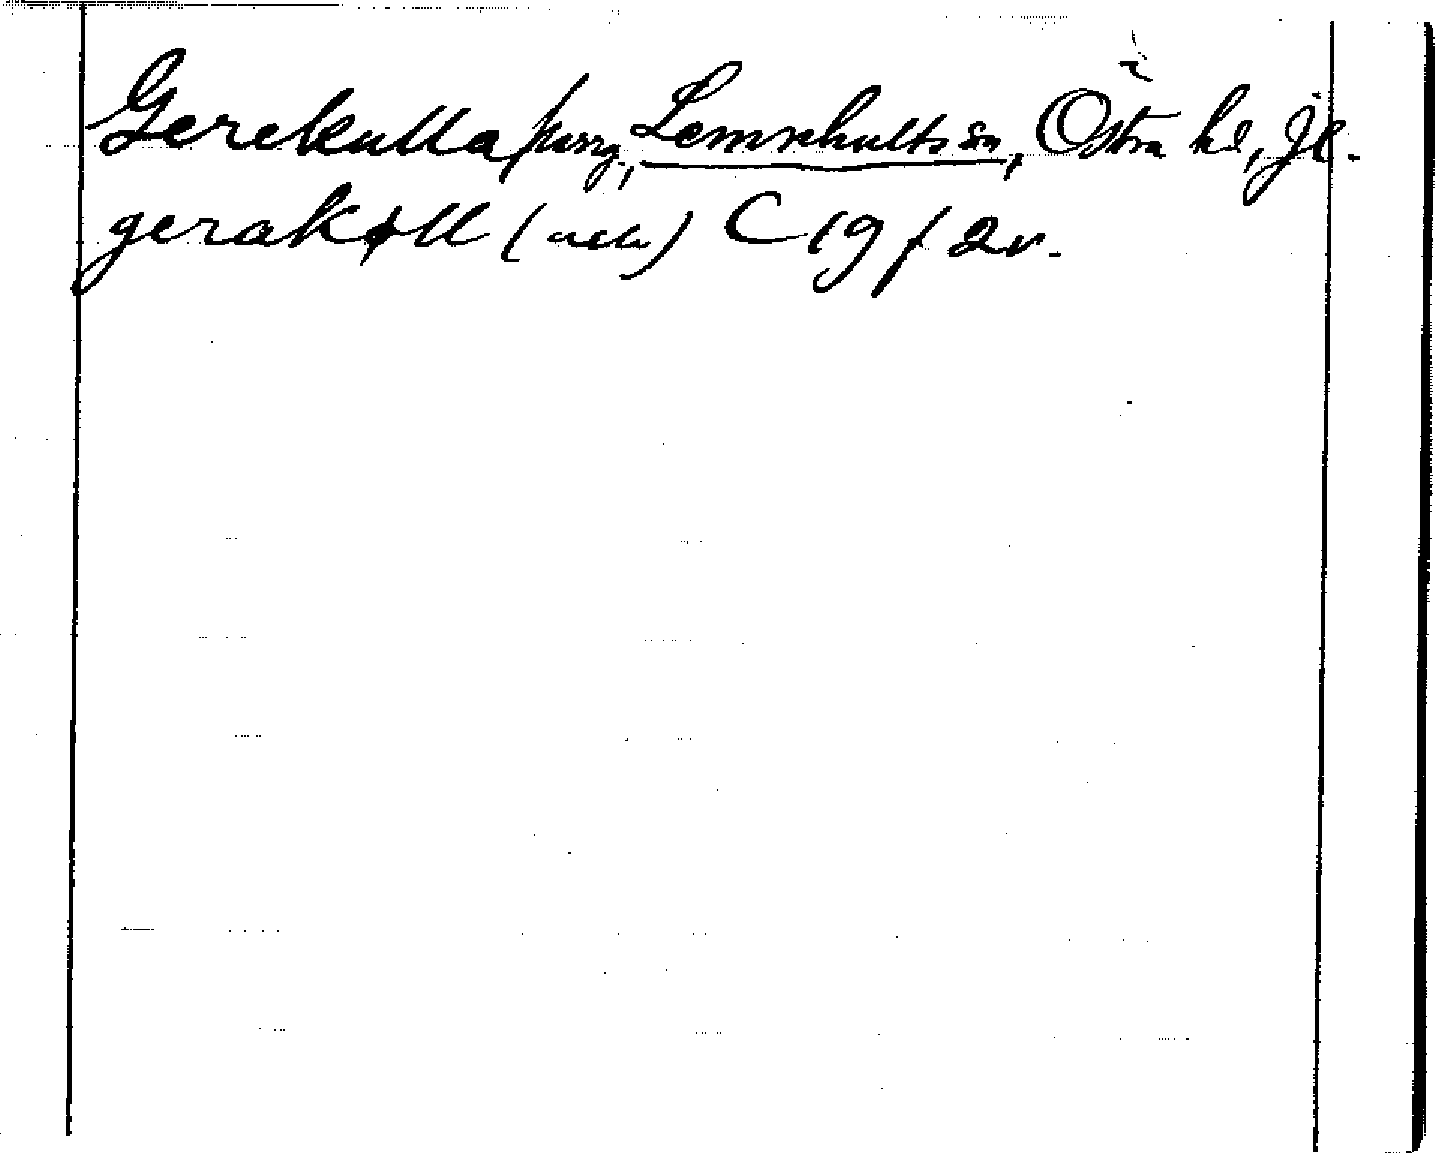 Gerekulla þing, Lemnhults sn, Östra hd, Jl.
gerakøll (ack) C 19 f 2v.